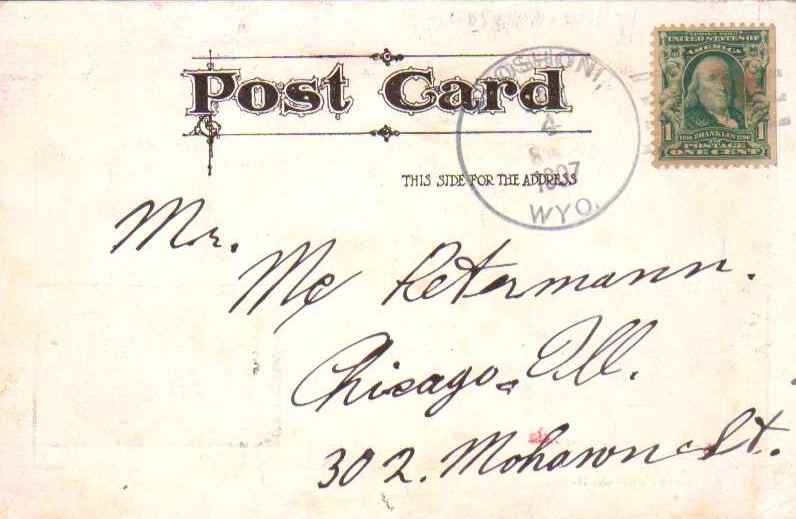 Post Card
THIS SIDE FOR THE ADDRESS
OSHONI,
4
1907
WYO.
UNITED STATES OF
AMERICA
1 FRANKLIN 1
POSTAGE
ONE CENT
Mr.
Mc Retermann.
Chicago, Ill.
302. Mohawn St.